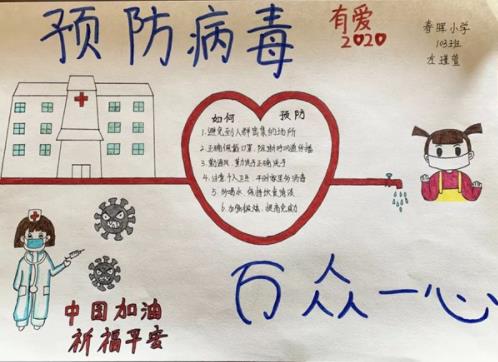 预防病毒
有爱
2020
春晖小学
103班
如何 预防
1.避免到人群密集的场所
2.正确佩戴口罩,阻断呼吸道传播
3.勤通风,勤洗手正确洗手
4.注重个人卫生
5.多喝水、保持饮食清淡
6.加强锻炼,提高免疫力
中国加油
祈福平安
万众一心